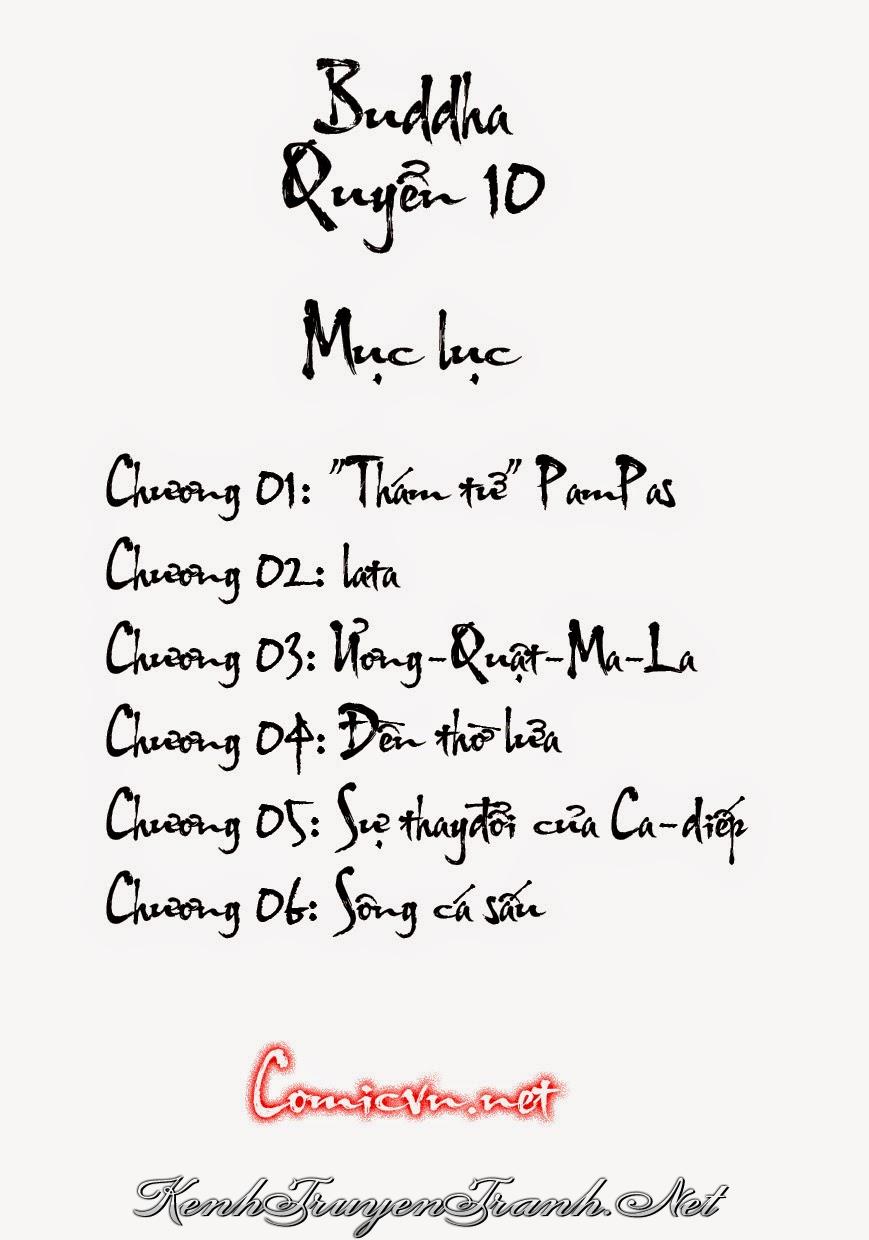 Buddha
Quyển 10
Mục lục
Chương 01: "Thám tử" PamPas
Chương 02: lata
Chương 03: Ương-Quật-Ma-La
Chương 04: Đền thờ lửa
Chương 05: Sự thayđổi của Ca-diếp
Chương 06: Sông cá sấu
Comicvn.net
KenhTruyenTranh.Net